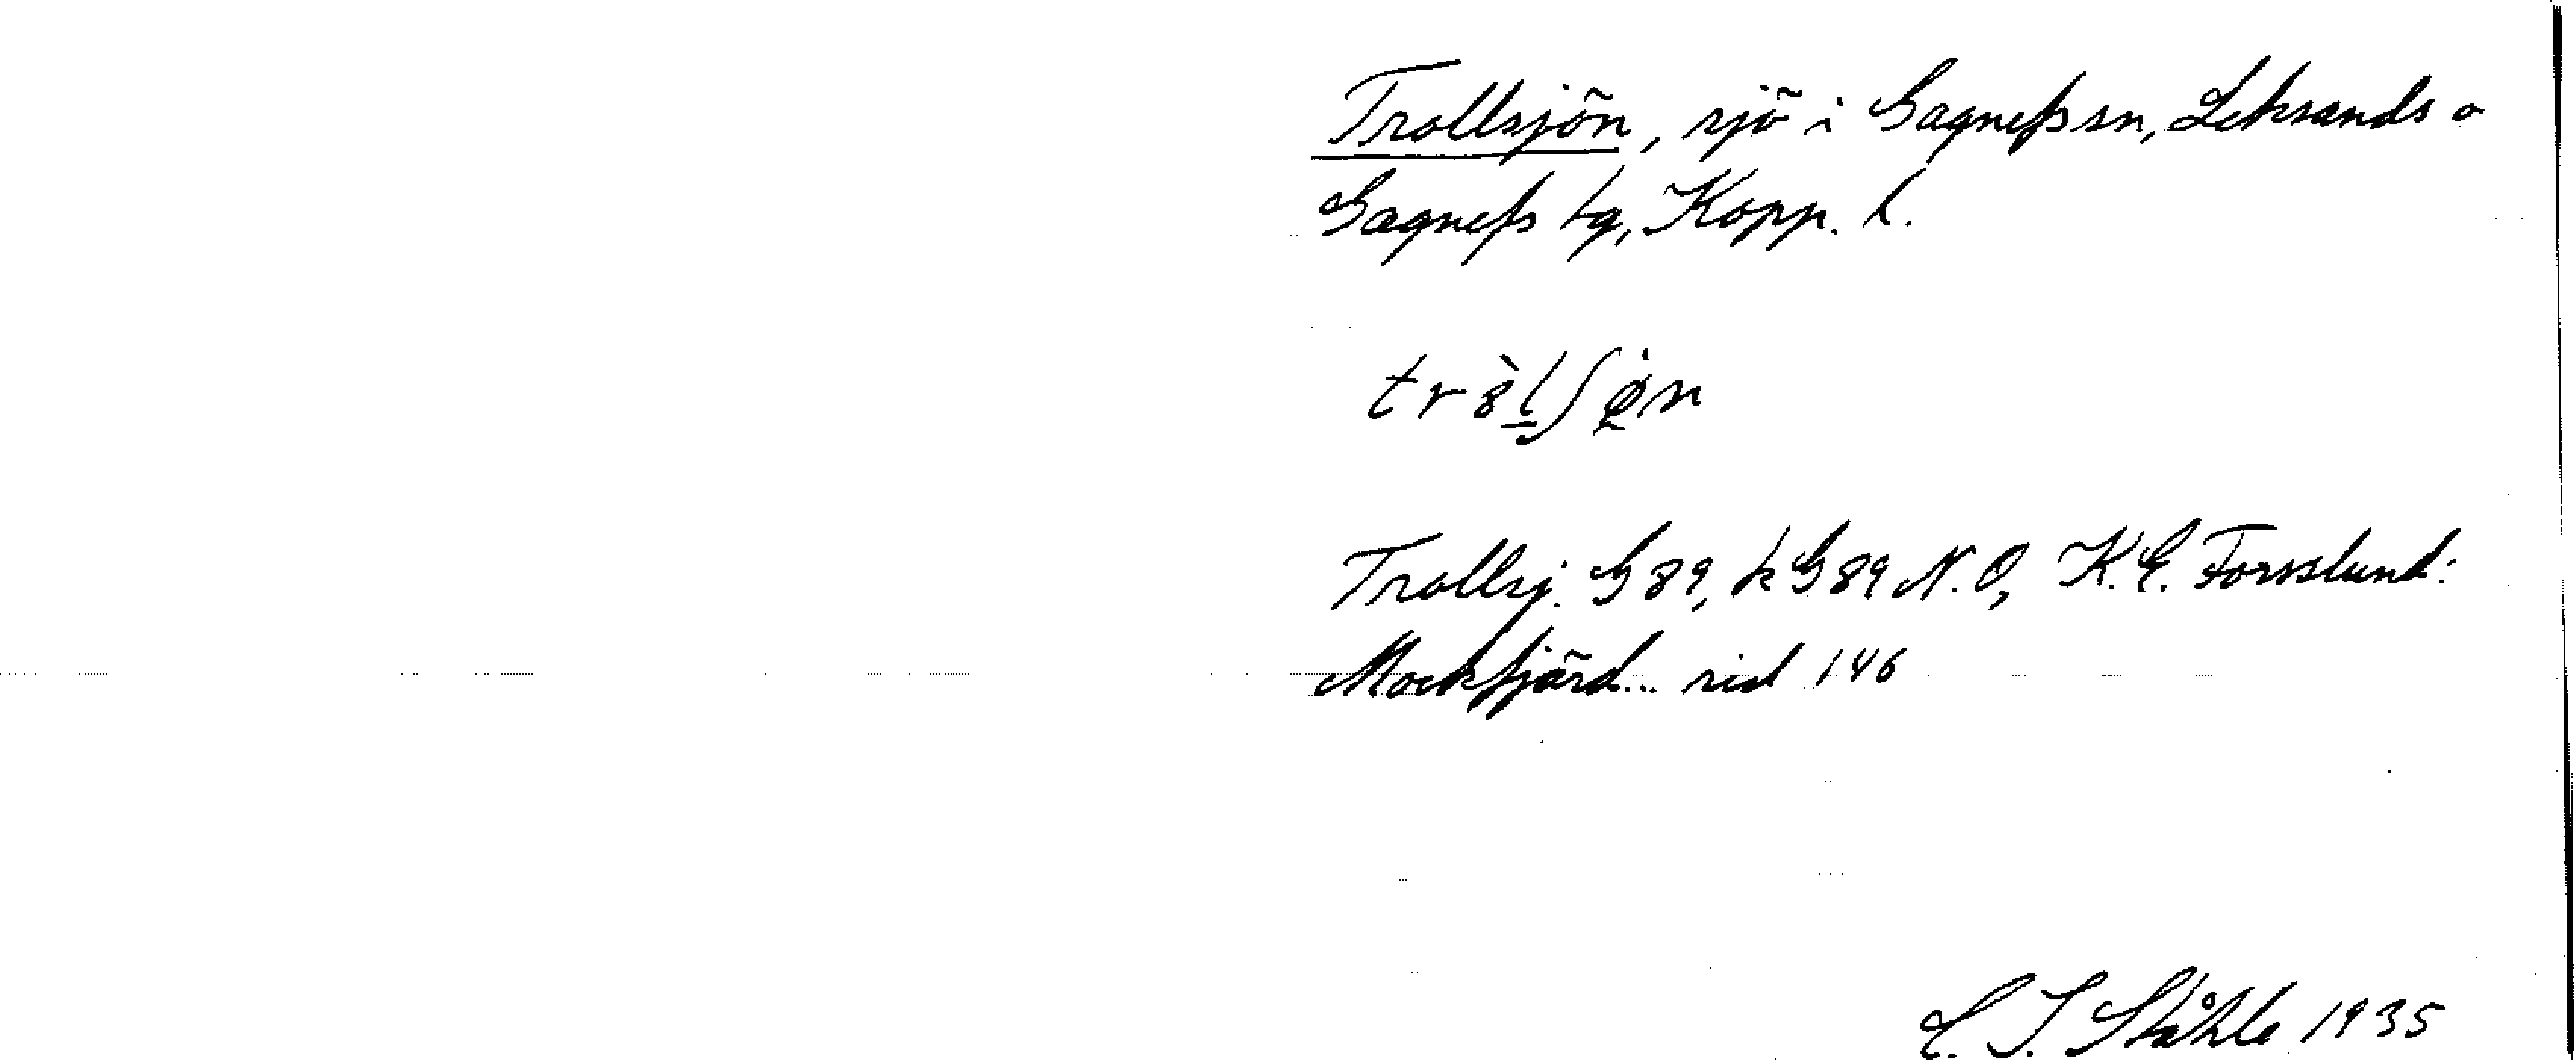 Trollsjön, sjö i Gagnefs sn, Leksands o
Gagnefs tg, Kopp. l.
Trollsj. G 89, k G 89 N.O, K.E. Forsslund:
Mockfjärd... sid 146
C. I. Ståhle 1935